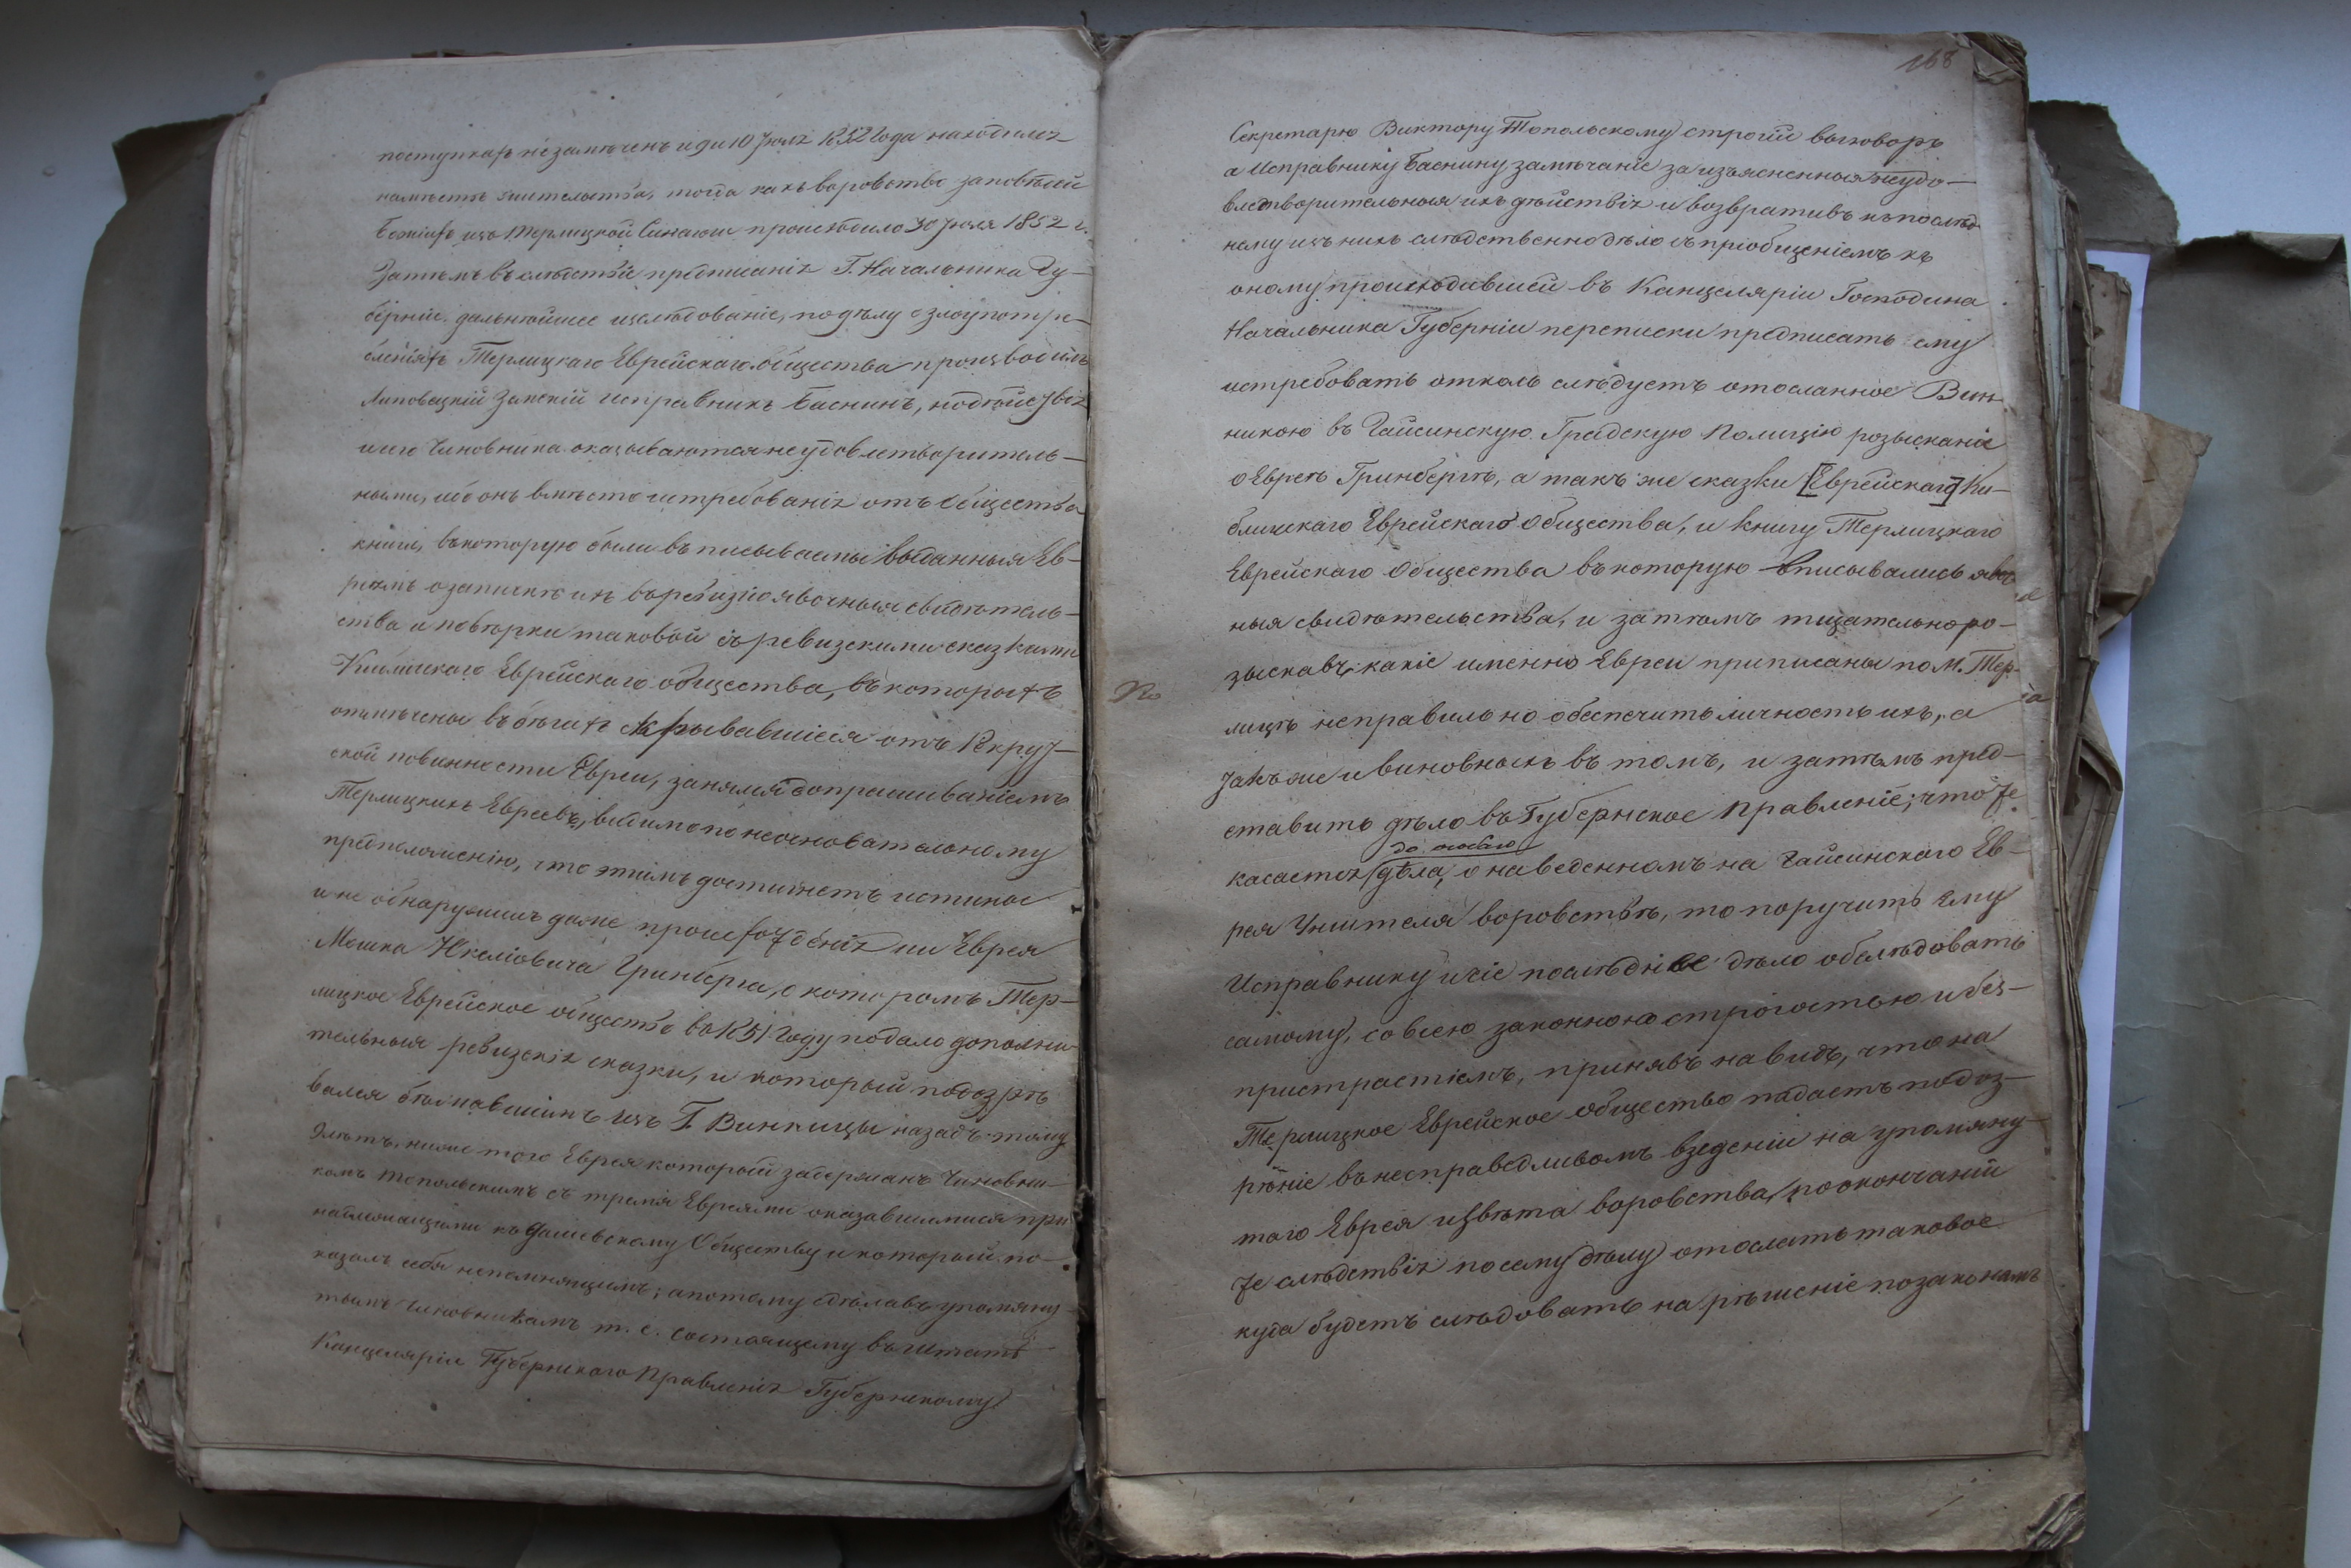 поступкахъ незамѣченъ и до 10 Іюля 1852 года находился
намѣстѣ жительства, тогда какъ воровство заповѣдей
Божіихъ изъ Терлицкой Синагоги происходило 30 Іюля 1852 г.
Затѣмъ въ слѣдствіе предписанія Г. Начальника Гу-
берніи дальнѣйшее изслѣдованіе, по дѣлу о злоупотре-
бленіяхъ Терлицкаго Еврейскаго общества производилъ
Липовецкій Земскій исправникъ Баснинъ, но дѣйствія
и сего Чиновника оказываются неудовлетворитель-
ными, ибо онъ вмѣсто истребованія отъ Общества
книги, въ которую были въписываемы выданныя Ев-
реямъ о запискѣ ихъ въ ревизію явочныя свидѣтель-
ства и повѣрки таковой съ ревизскими сказками
Кибличкаго Еврейскаго общества, въ которыхъ
отмѣчены въ бѣгахъ скрывавшіеся отъ Рекрут-
ской повинности Евреи, занялся допрашиваніемъ
Терлицкихъ Евреевъ, видимо по неосновательному
предположенію, что этимъ достигнетъ истиное
и не обнаружилъ даже происхожденія ни Еврея
Мошка Гринберга, о которомъ Тер-
лицкое Еврейское общество въ 1851 году подало дополни-
тельныя ревизскія сказки, и который подозрѣ-
вался бѣжавшимъ изъ Г. Винницы назадъ тому
лѣтъ, ниже того Еврея который задержанъ Чиновни-
комъ Топольскимъ съ тремя Евреями оказавшимися при
надлежащими къ Дашевскому Обществу и который по-
казалъ себя непомнящимъ; а потому сдѣлавъ упомяну-
тымъ Чиновникамъ т. е. состоящему въ штатѣ
Канцеляріи Губернскаго Правленія Губернскому
168
Секретарю Виктору Топольскому строгій выговоръ
а Исправнику Баснину замѣчаніе за изъясненныя неудо-
влетворительныя ихъ дѣйствія и возвративъ къ послѣд-
нему изъ нихъ слѣдственное дѣло съ пріобщеніемъ къ
оному происходившей въ Канцеляріи Господина
Начальника Губерніи переписки предписать ему
истребовать отколь слѣдуетъ отосланное Вин-
никою въ Гайсинскую Градскую Полицію розысканіе
о Евреѣ Гринбергѣ, а такъ же сказки [Еврейскаго] Ки-
бличкаго Еврейскаго Общества, и книгу Терлицкаго
Еврейскаго Общества въ которую вписывались явоч-
ныя свидѣтельства, и затѣмъ тщательно ро-
зыскавъ, какіе именно Евреи приписаны по М. Тер-
лицѣ неправильно обеспечить личность ихъ, а
такъ же и виновныхъ въ томъ, и затѣмъ пред-
ставить дѣло въ Губернское Правленіе; что же
до особаго
касается дѣла, о наведенномъ на Гайсинскаго Ев-
рея Учителя воровствѣ, то поручить ему
Исправнику и сіе послѣднее дѣло обслѣдовать
самому, со всею законною строгостью и без-
пристрастіемъ, принявъ на видъ, что на
Терлицкое Еврейское общество падаетъ подоз-
рѣніе въ несправедливомъ взведеніи на упомяну-
таго Еврея извѣта воровства, по окончаніи
же слѣдствія по сему дѣлу отослать таковое
куда будетъ слѣдовать на рѣшеніе по законамъ